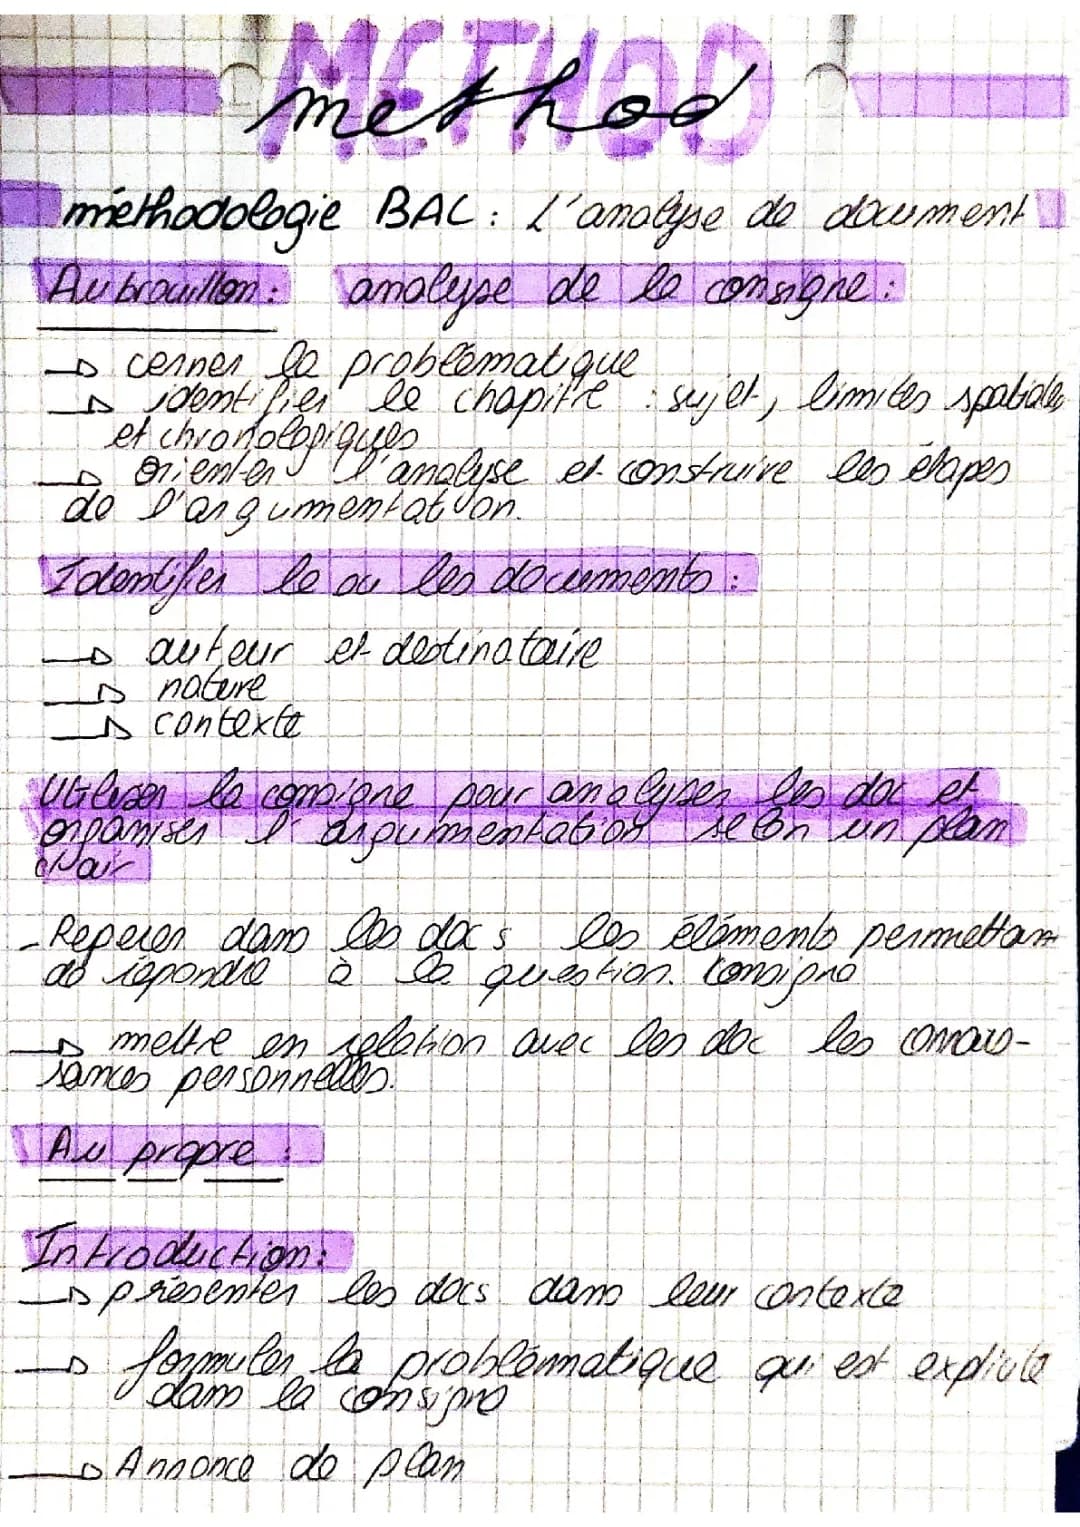 METHOD
method
méthodologie BAC : L'analyse de document
Au brouillon : analyse de la consigne :
→ cerner la problématique
→ identifier le chapitre : sujet, limites spatiales
et chronologiques
→ orienter l'analyse et construire les étapes
de l'argumentation.
Identifier le ou les documents :
→ auteur et destinataire
→ nature
→ contexte
Utiliser la consigne pour analyser les doc et
organiser l'argumentation selon un plan
clair
- Reperer dans les docs les éléments permettant
de répondre à la question. consigne
→ mettre en relation avec les doc les connais-
sances personnelles.
Au propre :
Introduction :
→ présenter les docs dans leur contexte
→ formuler la problématique qui est explicite
dans la consigne
→ Annonce de plan